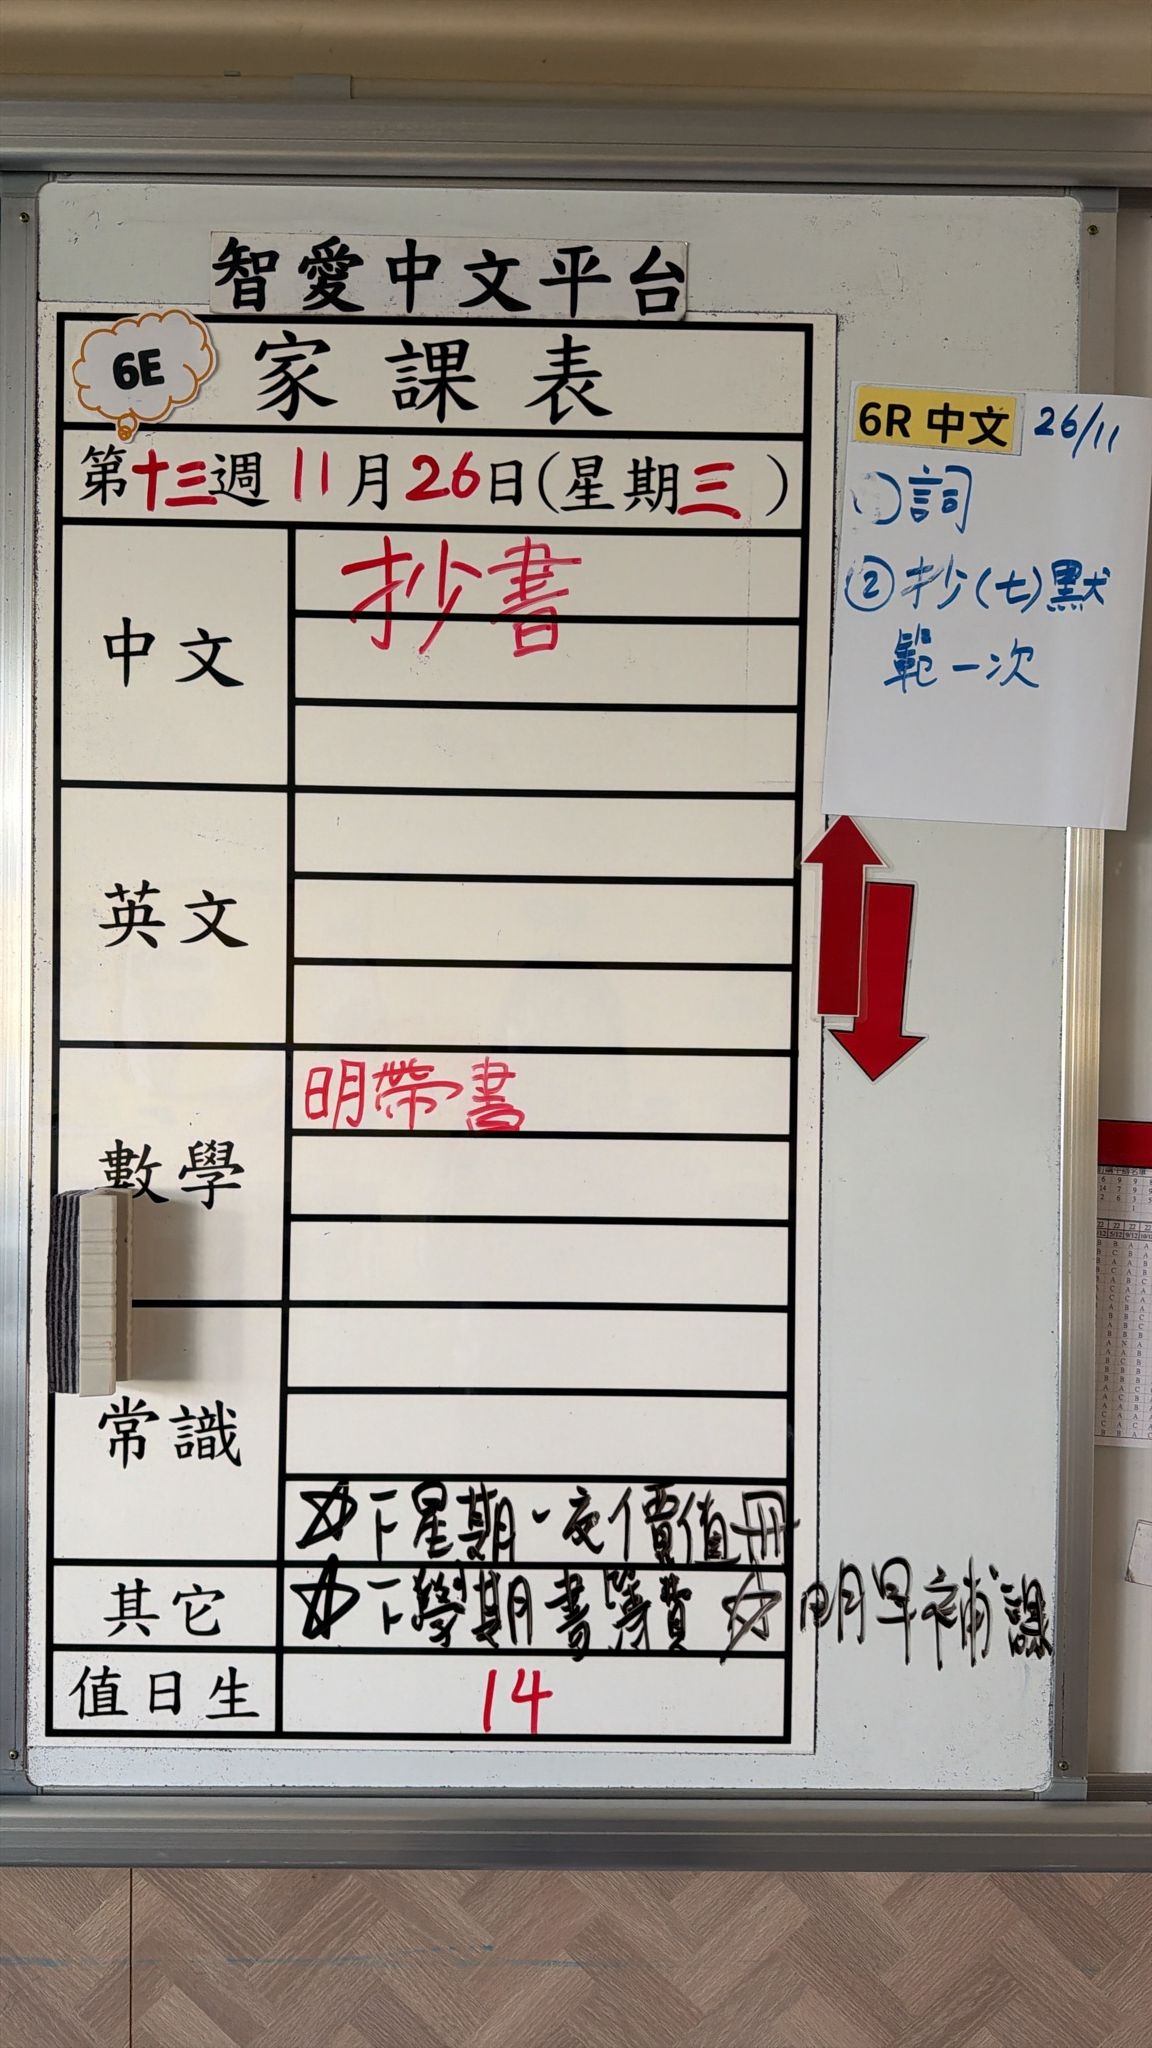 智愛中文平台
6E
家課表
第十三週 11月26日(星期三)
中文
抄書
英文
數學
明帶書
常識
☆下星期一交價值冊
其它
☆下學期書簿費 ☆明早補課
值日生
14
6R 中文 26/11
①詞
②抄(七)默
範一次